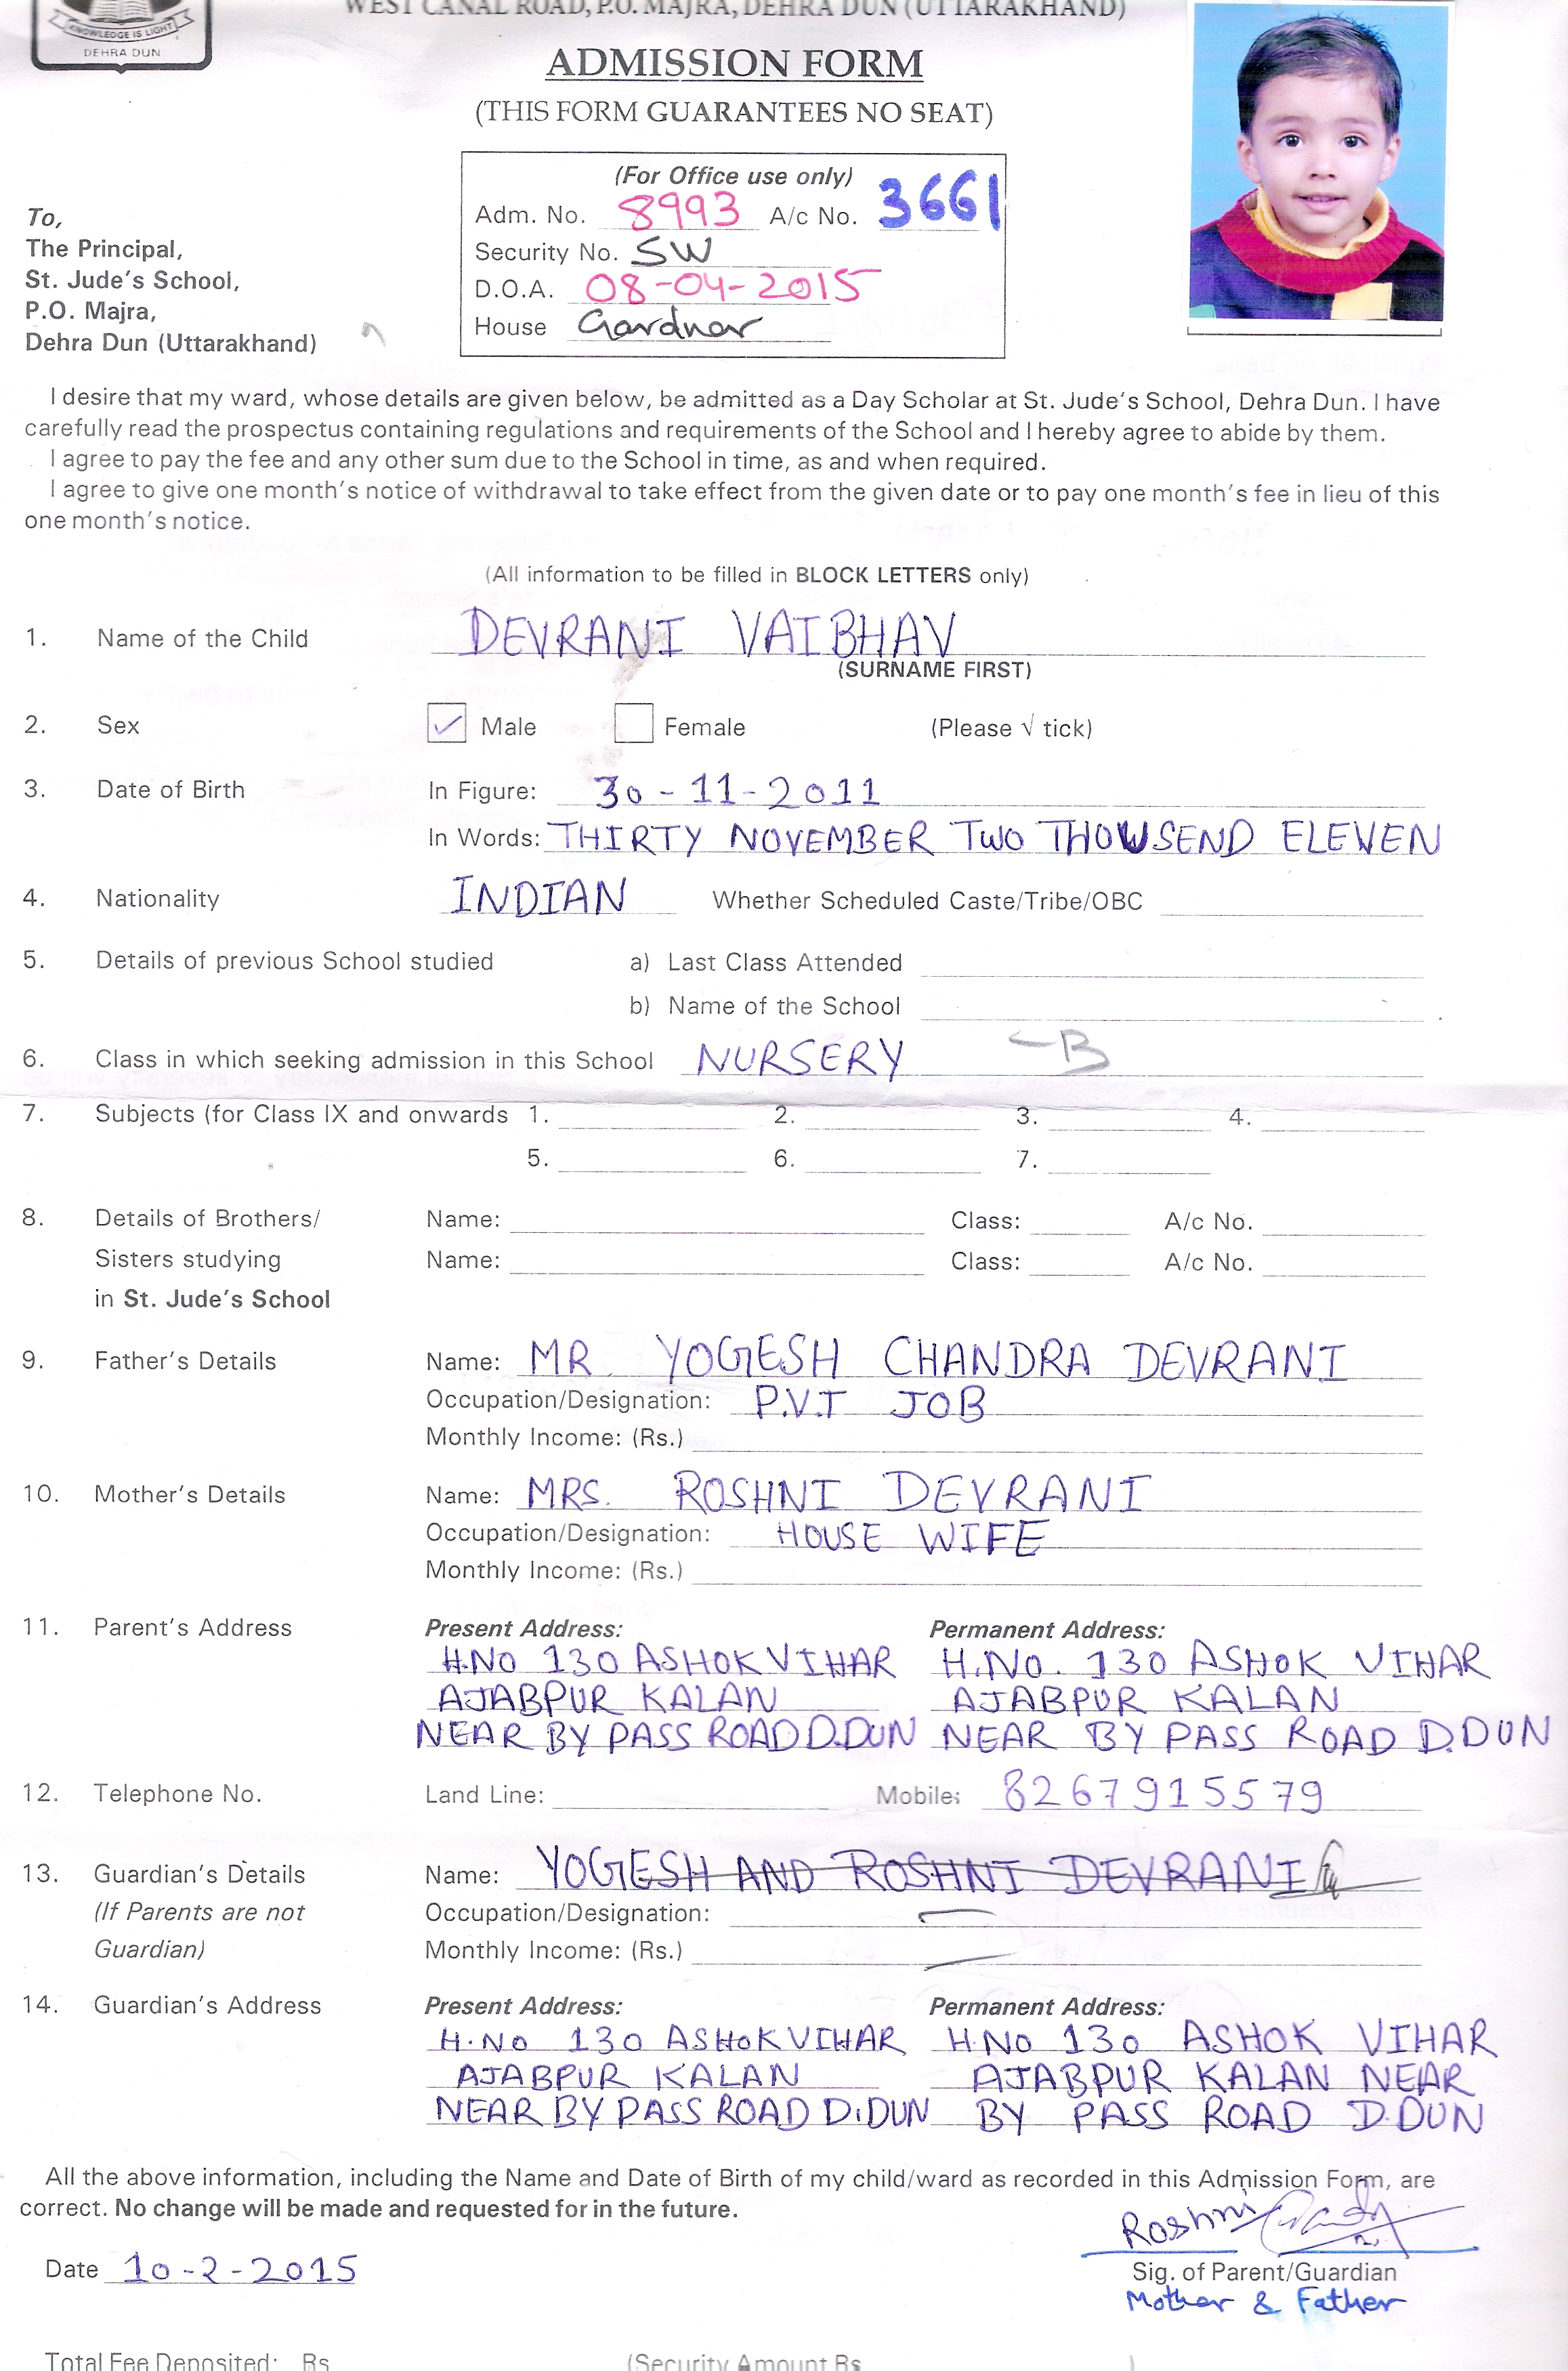 WEST CANAL ROAD, P.O. MAJRA, DEHRA DUN (UTTARAKHAND)
KNOWLEDGE IS LIGHT
DEHRA DUN
ADMISSION FORM
(THIS FORM GUARANTEES NO SEAT)
(For Office use only)
Adm. No. 8993 A/c No. 3661
Security No. SW
D.O.A. 08-04-2015
House Gardnar
To,
The Principal,
St. Jude's School,
P.O. Majra,
Dehra Dun (Uttarakhand)
I desire that my ward, whose details are given below, be admitted as a Day Scholar at St. Jude's School, Dehra Dun. I have
carefully read the prospectus containing regulations and requirements of the School and I hereby agree to abide by them.
I agree to pay the fee and any other sum due to the School in time, as and when required.
I agree to give one month's notice of withdrawal to take effect from the given date or to pay one month's fee in lieu of this
one month's notice.
(All information to be filled in BLOCK LETTERS only)
1. Name of the Child DEVRANI VAIBHAV
(SURNAME FIRST)
2. Sex ✓ Male Female (Please √ tick)
3. Date of Birth In Figure: 30-11-2011
In Words: THIRTY NOVEMBER TWO THOUSEND ELEVEN
4. Nationality INDIAN Whether Scheduled Caste/Tribe/OBC
5. Details of previous School studied a) Last Class Attended
b) Name of the School
6. Class in which seeking admission in this School NURSERY -B
7. Subjects (for Class IX and onwards 1. 2. 3. 4.
5. 6. 7.
8. Details of Brothers/ Name: Class: A/c No.
Sisters studying Name: Class: A/c No.
in St. Jude's School
9. Father's Details Name: MR. YOGESH CHANDRA DEVRANI
Occupation/Designation: P.V.T JOB
Monthly Income: (Rs.)
10. Mother's Details Name: MRS. ROSHNI DEVRANI
Occupation/Designation: HOUSE WIFE
Monthly Income: (Rs.)
11. Parent's Address Present Address: Permanent Address:
H.NO 130 ASHOK VIHAR H.NO. 130 ASHOK VIHAR
AJABPUR KALAN AJABPUR KALAN
NEAR BY PASS ROAD D.DUN NEAR BY PASS ROAD D.DUN
12. Telephone No. Land Line: Mobile: 8267915579
13. Guardian's Details Name: YOGESH AND ROSHNI DEVRANI
(If Parents are not Occupation/Designation: —
Guardian) Monthly Income: (Rs.) —
14. Guardian's Address Present Address: Permanent Address:
H.NO 130 ASHOK VIHAR H.NO 130 ASHOK VIHAR
AJABPUR KALAN AJABPUR KALAN NEAR
NEAR BY PASS ROAD D.DUN BY PASS ROAD D.DUN
All the above information, including the Name and Date of Birth of my child/ward as recorded in this Admission Form, are
correct. No change will be made and requested for in the future.
Roshni
Date 10-2-2015
Sig. of Parent/Guardian
Mother & Father
Total Fee Deposited: Rs (Security Amount Rs )